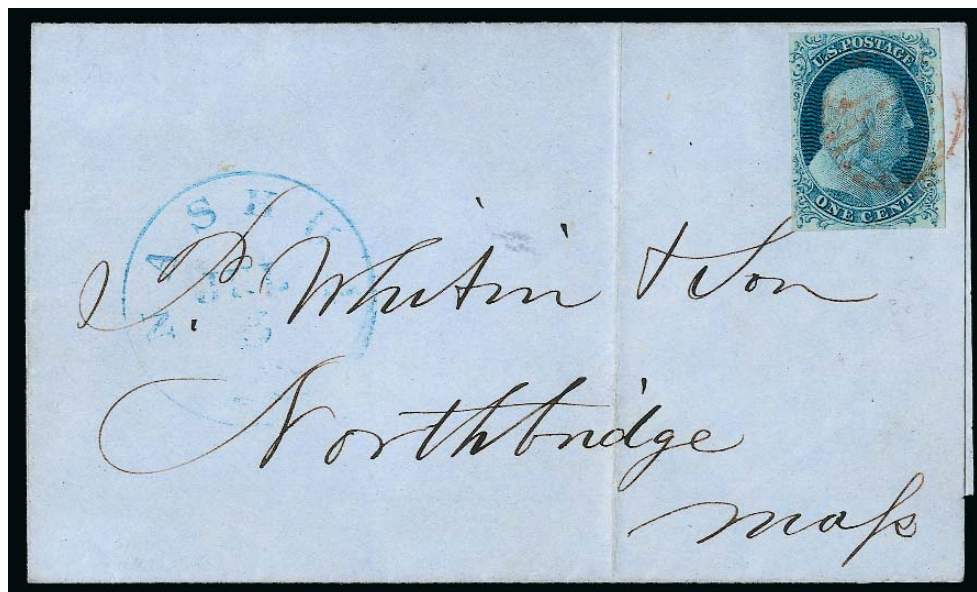 U.S. POSTAGE
ONE CENT
JUL
5
P. Whitin & Son
Northbridge
Mass